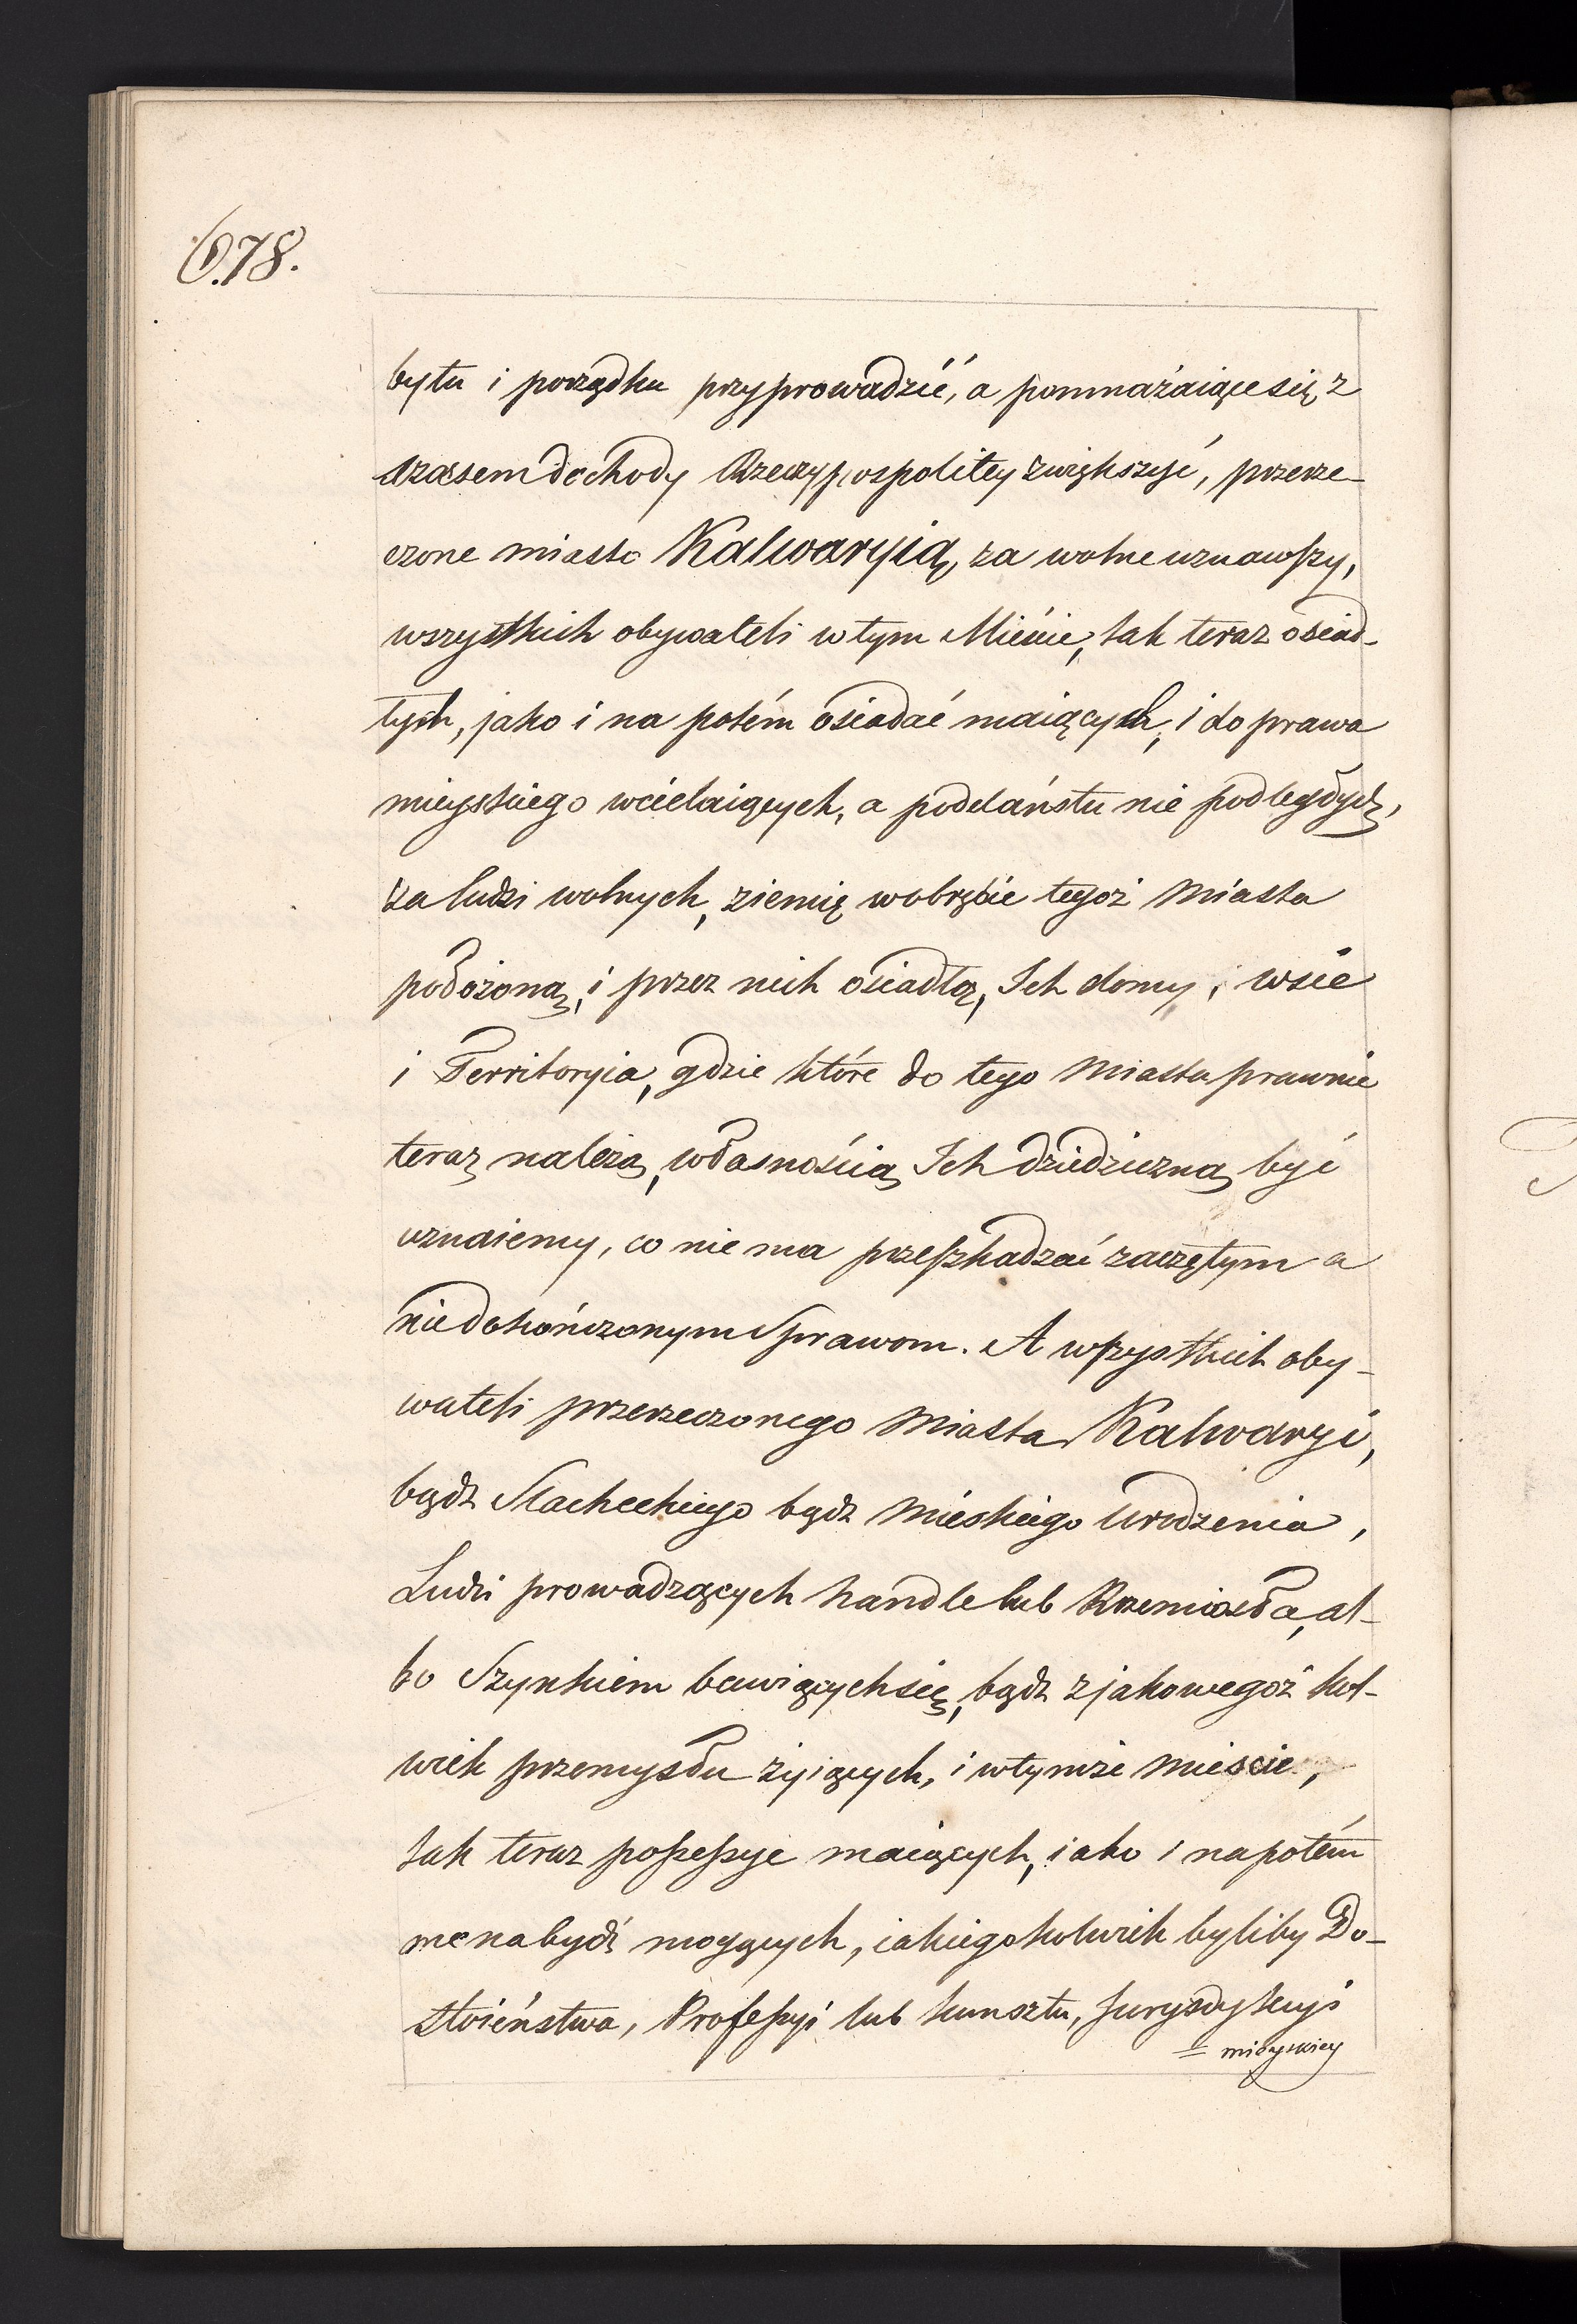 678.
bytu i porządku przyprowadzić, a pomnażaiące się, z
czasem dochody Rzeczypospolitey zwiększyć, przerze-
czone miasto Kalwaryią, za wolne uznawszy,
wszystkich obywateli w tym Mieście, tak teraz osiad-
łych, jako i na potém osiadać maiących, i do prawa
mieyskiego wcielaiących, a poddaństu nie podległych,
za ludzi wolnych, ziemię w obrębie tegoż Miasta
położoną, i przez nich osiadłą, Ich domy, i wsie
i Territoryia, gdzie które do tego Miasta prawnie
teraz należą, własnością Ich dziedziczną być
uznaiemy, co nie ma przeszkadzać zaczętym a
niedokończonym Sprawom. A wszystkich oby-
wateli przerzeczonego Miasta Kalwaryi,
bądź Slacheckiego bądź Mieskiego Urodzenia,
Ludzi prowadzących handle lub Rzemiosła, al-
bo Szynkiem bawiących się, bądź z jakowegoż kol-
wiek przemysłu żyiących, i w tymże Mieście,
tak teraz possessye maiących, iako i na potém
me nabydź mogących, iakiegokolwiek byliby Do-
stoieństwa, Professyi lub kunsztu, Jurysdykcyi
= mieyskiey